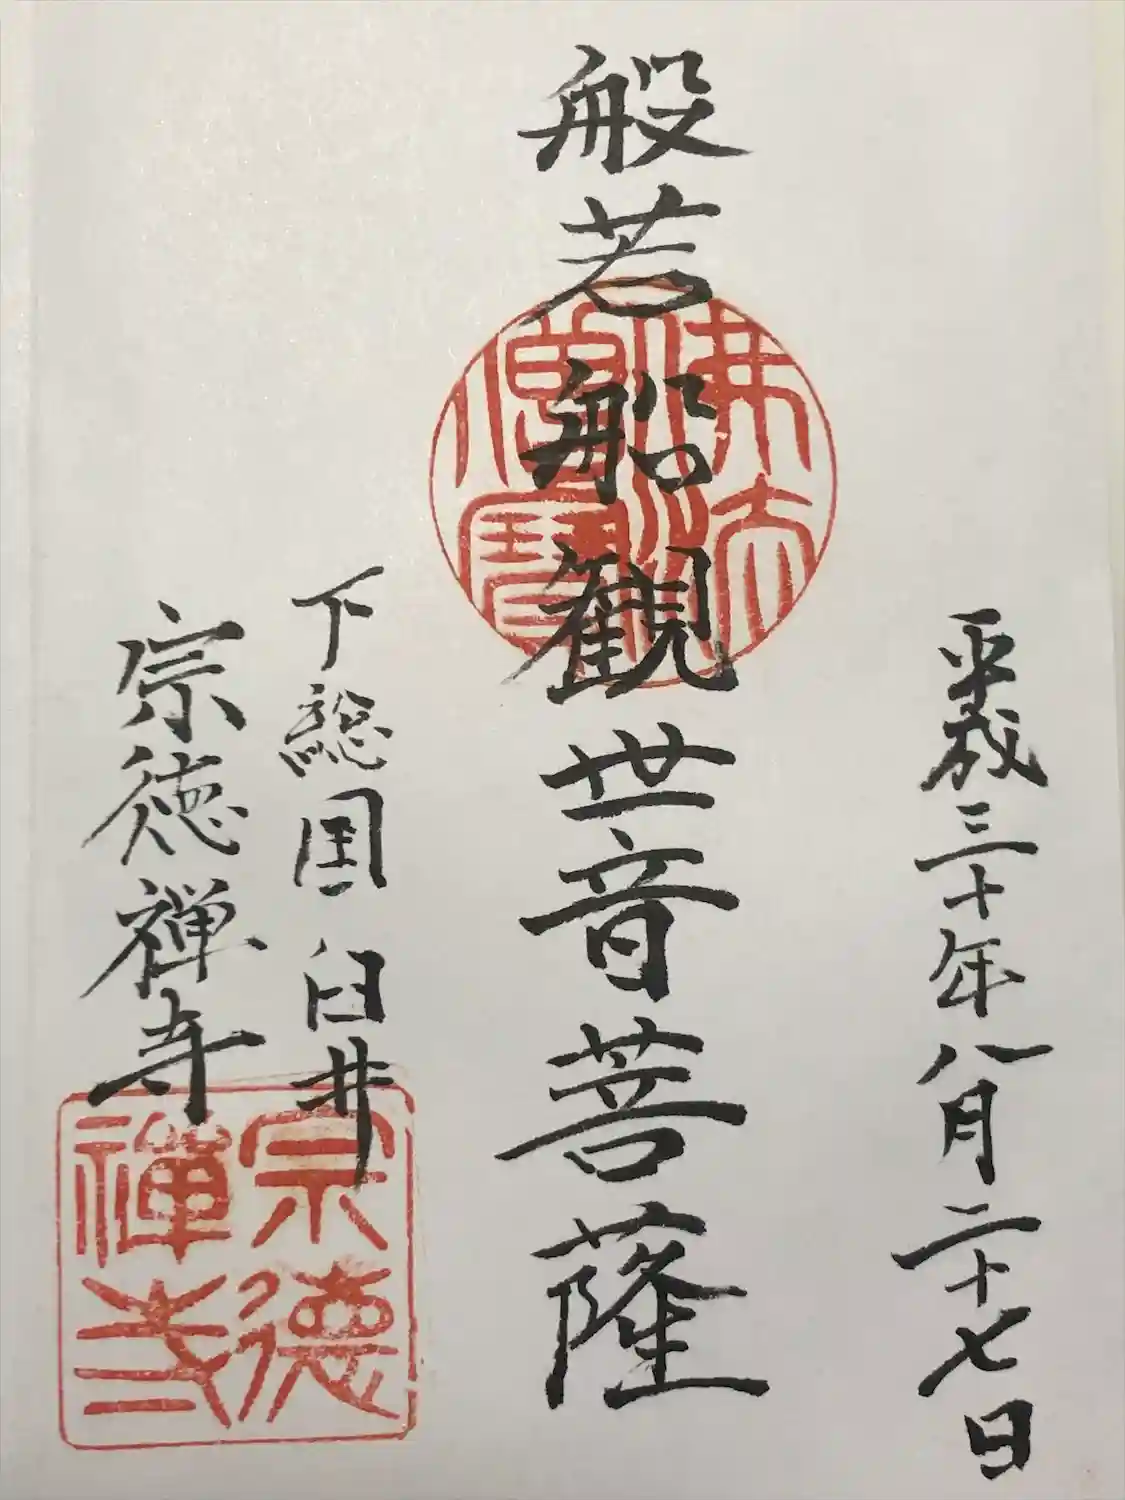 平成三十年八月二十七日
般若船観世音菩薩
佛法僧寳
下総国臼井
宗徳禅寺
宗德禪寺